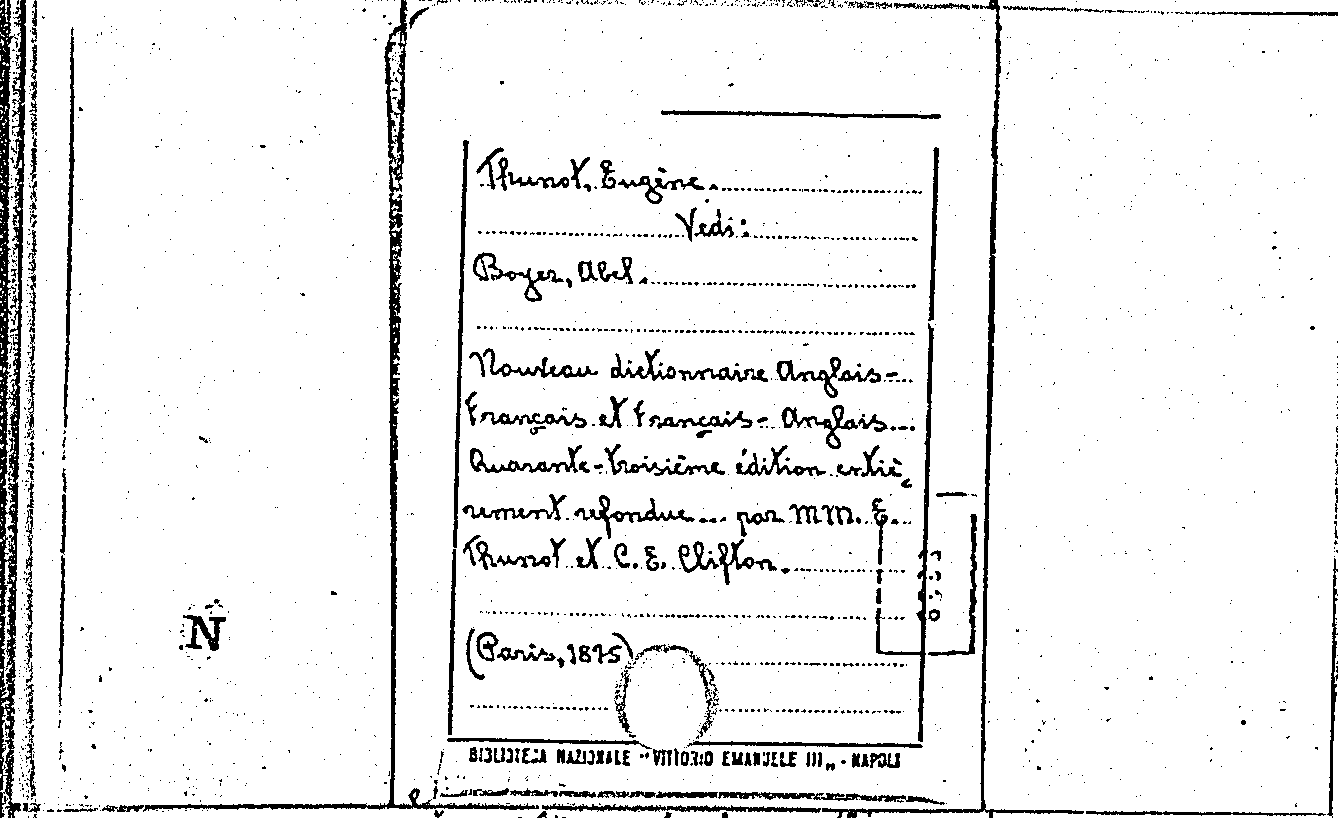 Thunot, Eugène.
Vedi:
Boyer, Abel.
Nouveau dictionnaire Anglais-
Français et Français-Anglais...
Quarante-troisième édition entiè-
rement refondue... par MM. E.
Thunot et C. E. Clifton.
(Paris, 1875)
N
BIBLIOTECA NAZIONALE "VITTORIO EMANUELE III„ - NAPOLI